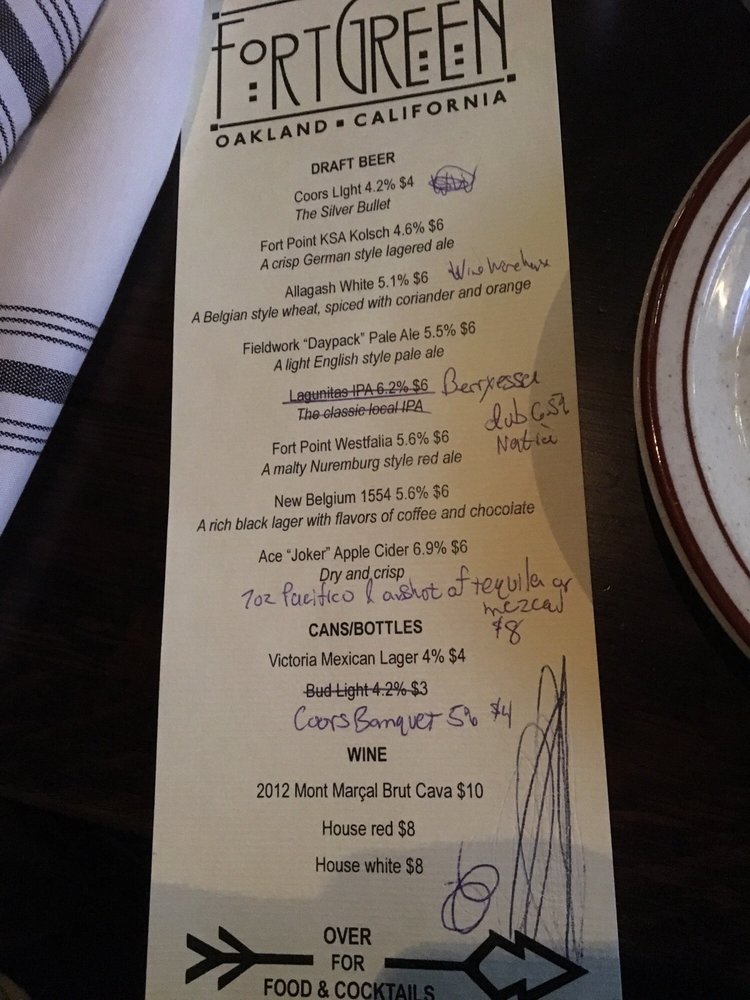 FORT GREEN
OAKLAND ▪ CALIFORNIA
DRAFT BEER
Coors LIght 4.2% $4
The Silver Bullet
Fort Point KSA Kolsch 4.6% $6
A crisp German style lagered ale
Allagash White 5.1% $6
A Belgian style wheat, spiced with coriander and orange
Fieldwork "Daypack" Pale Ale 5.5% $6
A light English style pale ale
Lagunitas IPA 6.2% $6 Berryessa
The classic local IPA
Fort Point Westfalia 5.6% $6
A malty Nuremburg style red ale
New Belgium 1554 5.6% $6
A rich black lager with flavors of coffee and chocolate
Ace "Joker" Apple Cider 6.9% $6
Dry and crisp
7oz Pacifico & a shot of tequila or
mezcal
$8
CANS/BOTTLES
Victoria Mexican Lager 4% $4
Bud Light 4.2% $3
Coors Banquet 5% $4
WINE
2012 Mont Marçal Brut Cava $10
House red $8
House white $8
OVER
FOR
FOOD & COCKTAILS